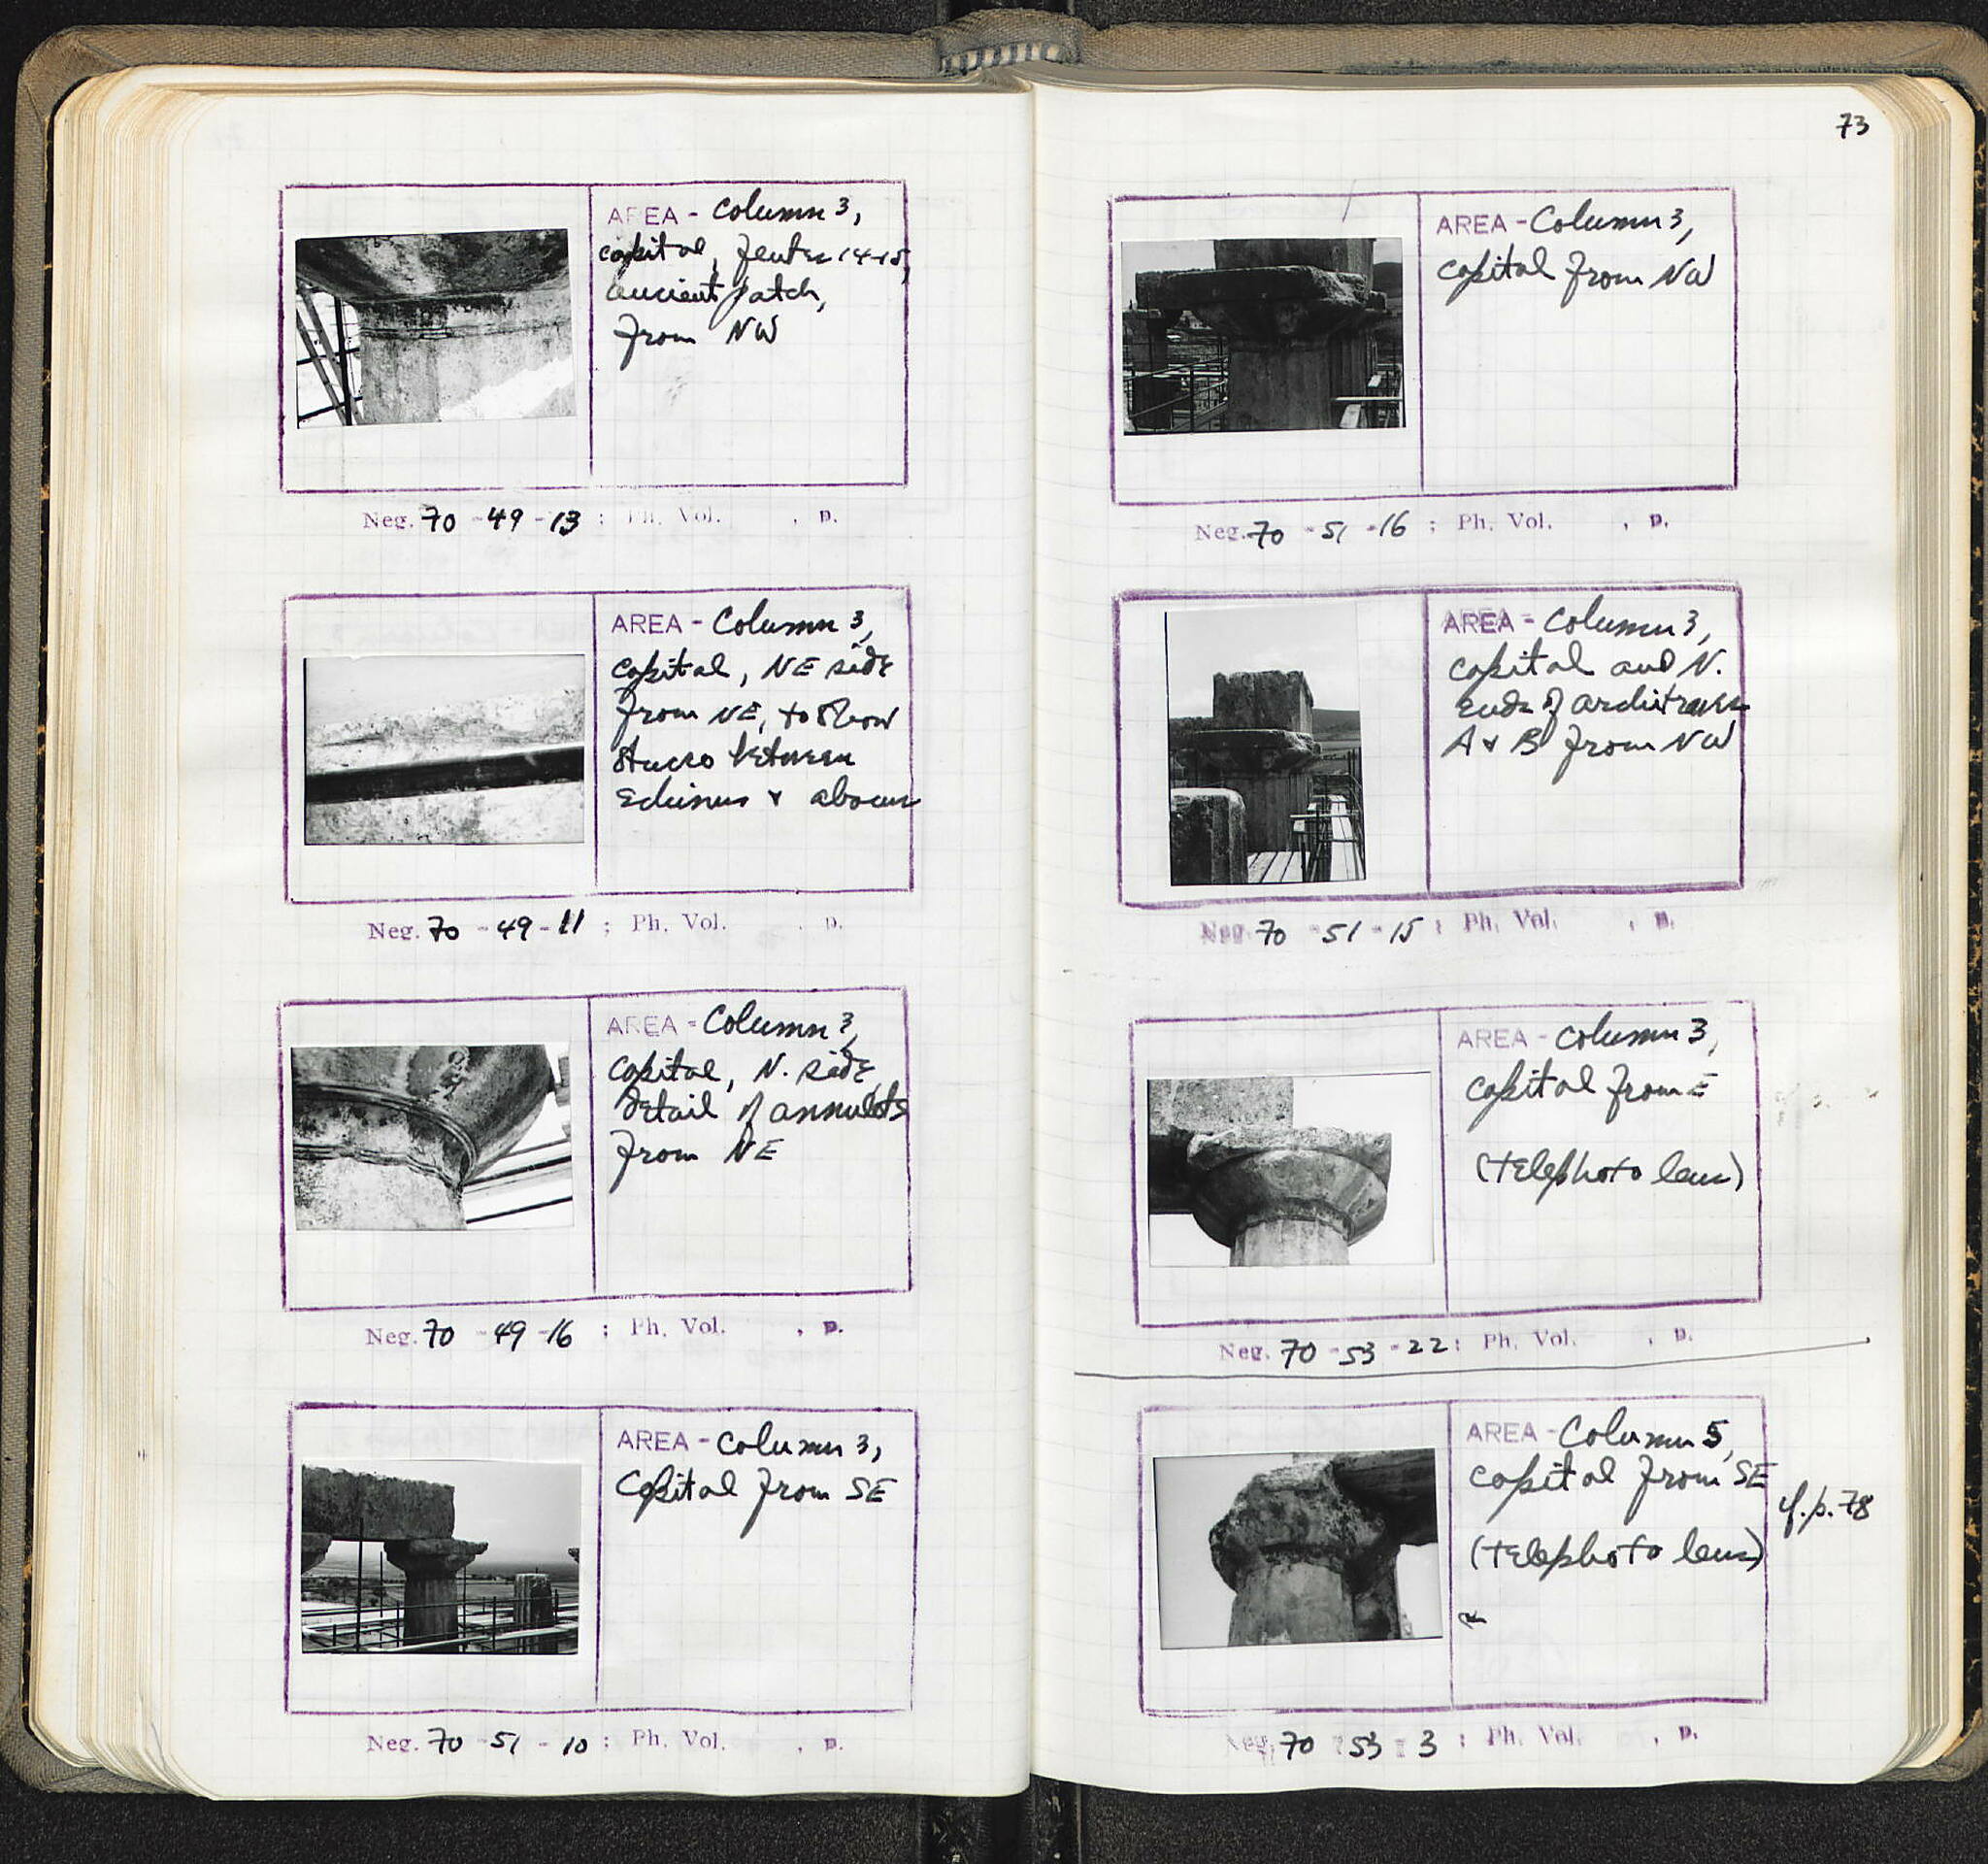 AREA - Column 3,
capital, fluter 14-15,
ancient patch,
from NW
Neg. 70 - 49 - 13 ; Ph. Vol. , p.
AREA - Column 3,
capital, NE side
from NE, to show
stucco between
echinus & abacus
Neg. 70 - 49 - 11 ; Ph. Vol. , p.
AREA - Column 3,
capital, N. side
detail of annulets
from NE
Neg. 70 - 49 - 16 ; Ph. Vol. , p.
AREA - Column 3,
Capital from SE
Neg. 70 - 51 - 10 ; Ph. Vol. , p.
73
AREA - Column 3,
capital from NW
Neg. 70 - 51 - 16 ; Ph. Vol. , p.
AREA - Column 3,
capital and N.
ends of architraves
A & B from NW
Neg. 70 - 51 - 15 ; Ph. Vol. , p.
AREA - Column 3,
capital from E
(telephoto lens)
Neg. 70 - 53 - 22 ; Ph. Vol. , p.
AREA - Column 5,
capital from SE
cf. p. 78
(telephoto lens)
Neg. 70 - 53 - 3 ; Ph. Vol. , p.